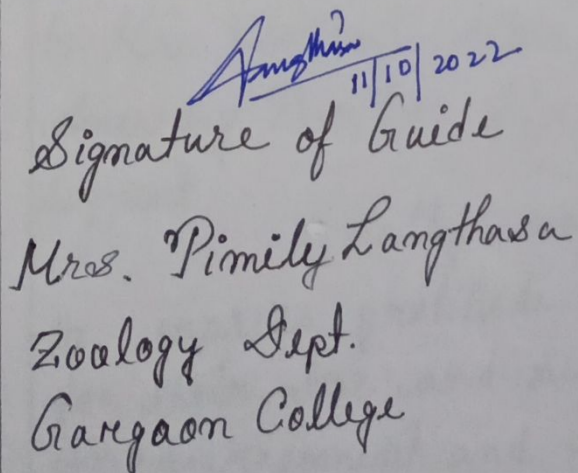 11/10/2022
Signature of Guide
Mrs. Pimily Langthasa
Zoology Dept.
Gargaon College